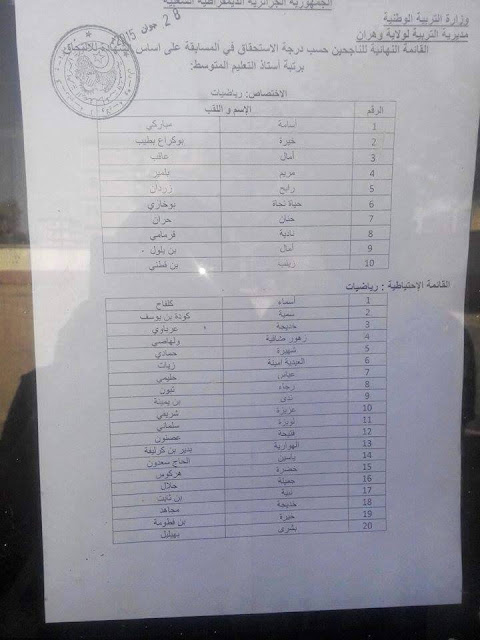 الجمهورية الجزائرية الديمقراطية الشعبية
وزارة التربية الوطنية
مديرية التربية لولاية وهران
28 جوان 2015
القائمة النهائية للناجحين حسب درجة الاستحقاق في المسابقة على اساس الشهادة للالتحاق
برتبة أستاذ التعليم المتوسط:
الاختصاص: رياضيات
الرقم الإسم و اللقب
1 أسامة مباركي
2 خيرة بوكراع بطيب
3 أمال عاقب
4 مريم بلمير
5 رابح زردال
6 حياة نجاة بوخاري
7 حنان حران
8 نادية قرمامي
9 أمال بن بلول
10 زينب بن قطني
القائمة الإحتياطية : رياضيات
1 أسماء كلفاح
2 سمية كودة بن يوسف
3 خديجة عرباوي
4 زهور مشافية ولهاصي
5 شهيرة حمادي
6 العيدية أمينة زيات
7 عباس حليمي
8 رجاء تبون
9 ندى بن يمينة
10 عزيزة شريفي
11 لويزة سلماني
12 فتيحة عصنون
13 الهوارية بدير بن كرليفة
14 ياسين الحاج سعدون
15 حضرة هركوس
16 جميلة جلال
17 نبية بن ثابت
18 خديجة مجاهد
19 خيرة بن قطومة
20 بشرى بهيليل